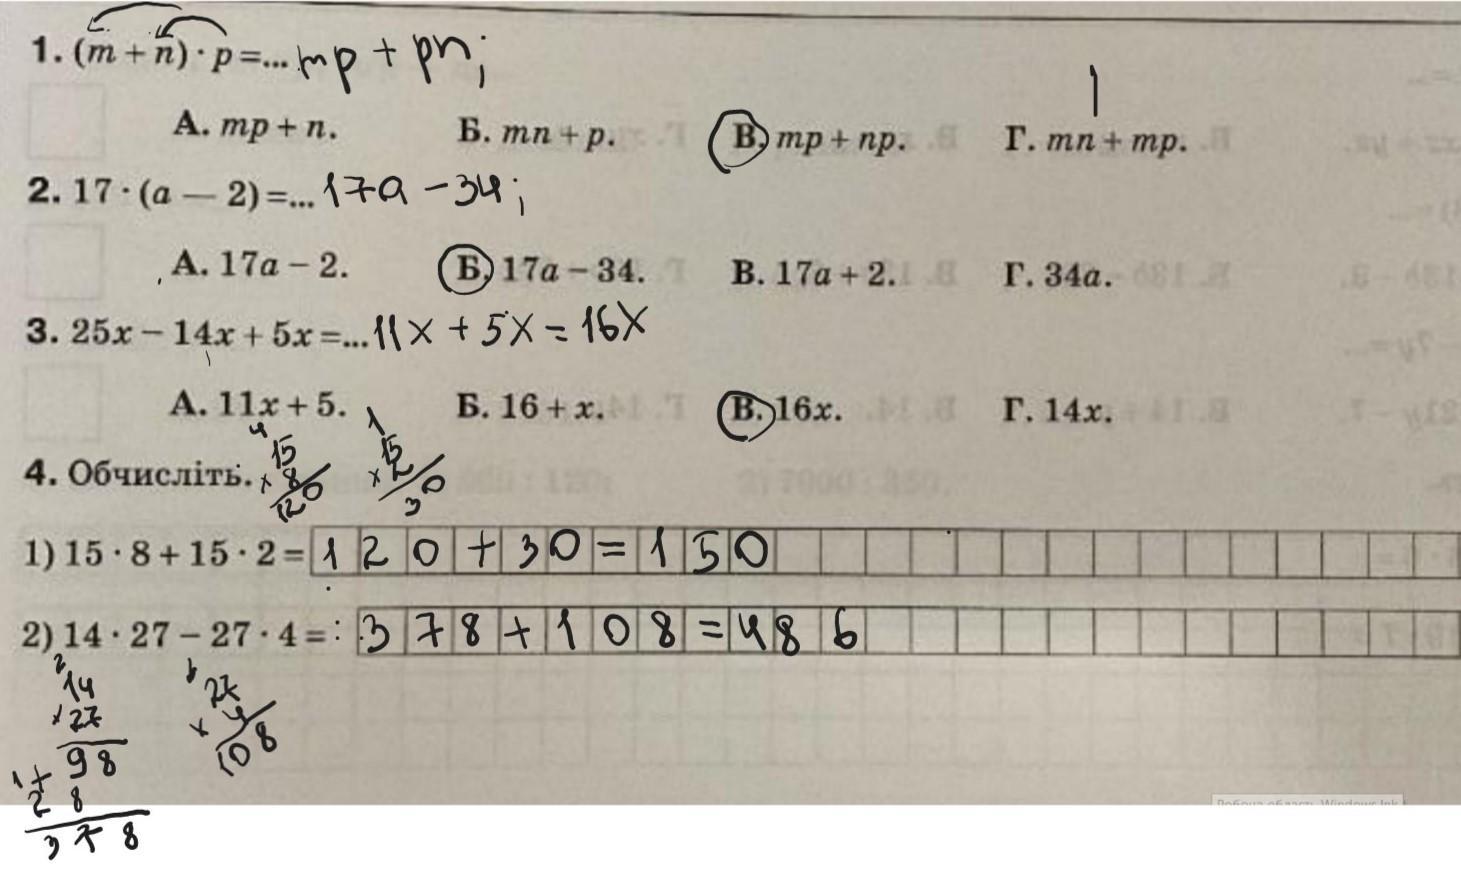 1. (m + n) · p =... mp + pn;
А. mp + n. Б. mn + p. В. mp + np. Г. mn + mp.
2. 17 · (a — 2) =... 17a - 34;
А. 17a – 2. Б. 17a – 34. В. 17a + 2. Г. 34a.
3. 25x – 14x + 5x =... 11x + 5x = 16x
А. 11x + 5. Б. 16 + x. В. 16x. Г. 14x.
4. Обчисліть.
4
15
× 8
120
1
15
× 2
30
1) 15 · 8 + 15 · 2 = 120 + 30 = 150
2) 14 · 27 – 27 · 4 = 378 + 108 = 486
2
14
× 27
98
1 +
28
378
27
× 4
108